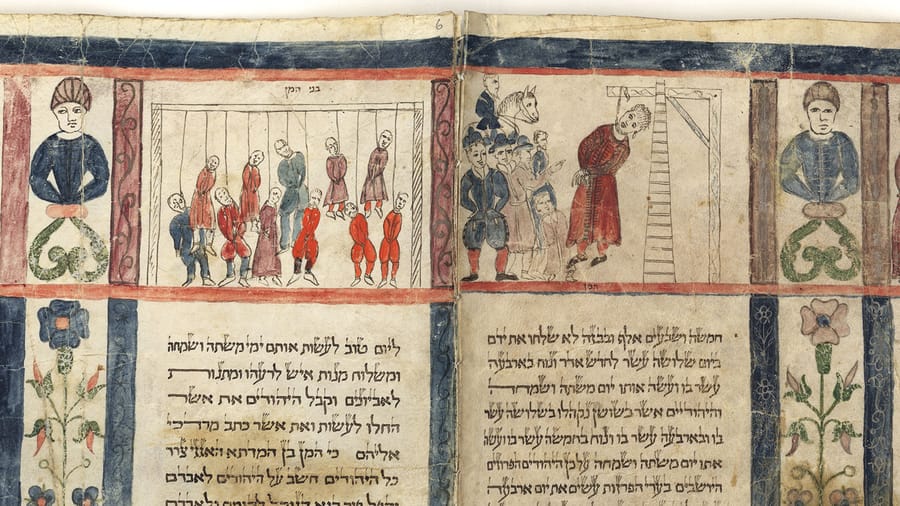 6
המן
חמשה ושבעים אלף ובבזה לא שלחו את ידם
ביום שלושה עשר לחדש אדר ונוח בארבעה
עשר בו ועשה אותו יום משתה ושמחה
והיהודיים אשר בשושן נקהלו בשלושה עשר
בו ובארבעה עשר בו ונוח בחמשה עשר בו ועשה
אתו יום משתה ושמחה על כן היהודים הפרזים
הישבים בערי הפרזות עשים את יום ארבעה
בני המן
ליום טוב לעשות אותם ימי משתה ושמחה
ומשלוח מנות איש לרעהו ומתנות
לאביונים וקבל היהודים את אשר
החלו לעשות ואת אשר כתב מרדכי
אליהם כי המן בן המדתא האגגי צרר
כל היהודים חשב על היהודים לאבדם